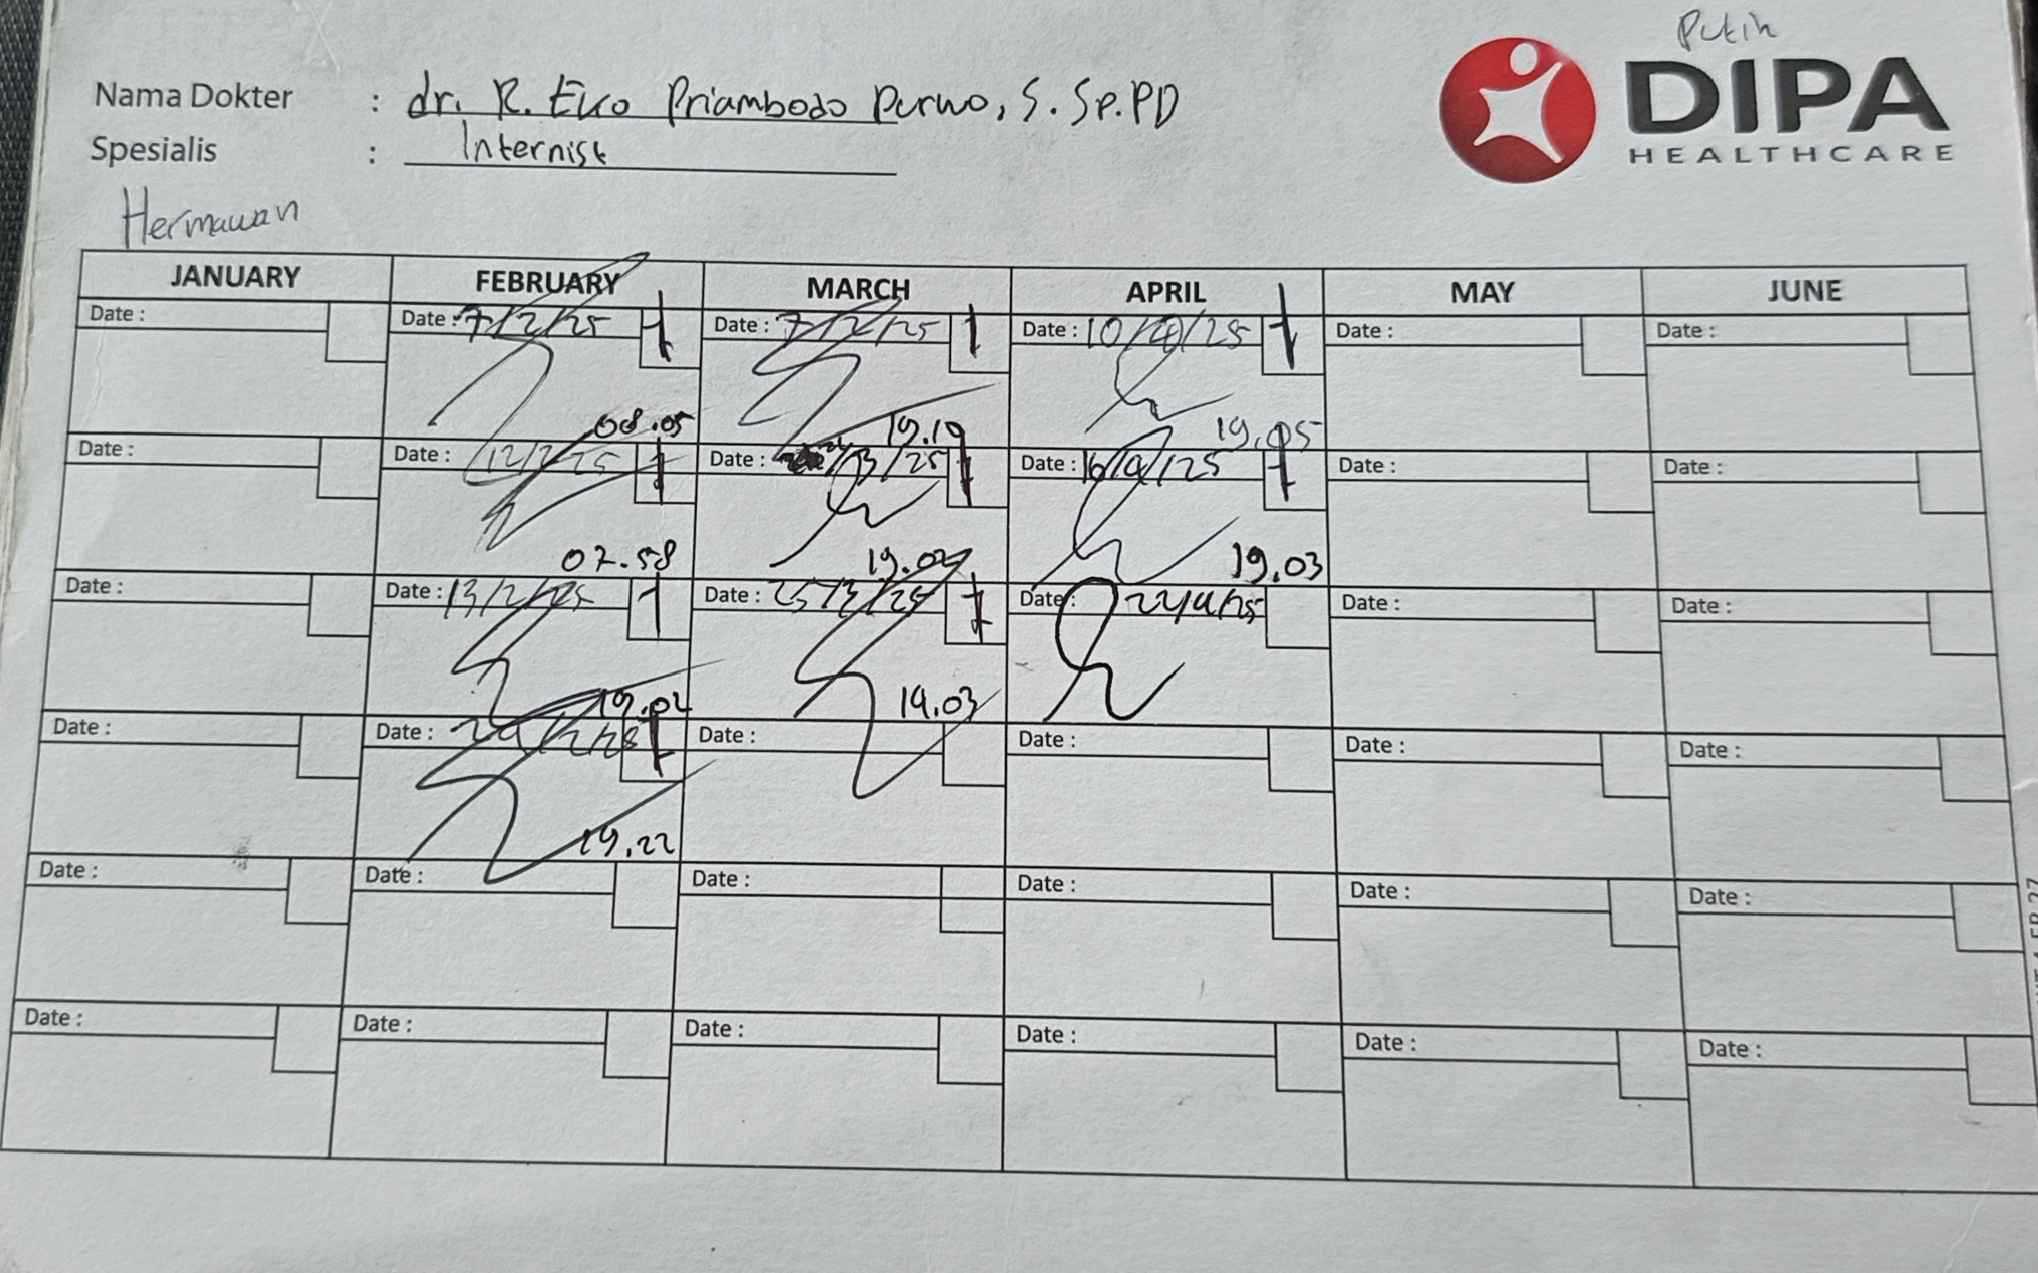 Putih
DIPA
HEALTHCARE
Nama Dokter : dr. R. Eko Priambodo Purwo, S. Sp.PD
Spesialis : Internist
Hermawan
JANUARY FEBRUARY MARCH APRIL MAY JUNE
Date : Date : 7/2/25 Date : 7/2/25 Date : 10/4/25 Date : Date :
08.05 19.19 19.05
Date : Date : 12/2/25 Date : /3/25 Date : 16/4/25 Date : Date :
07.58 19.02 19.03
Date : Date : 13/2/25 Date : 25/3/25 Date : 22/4/25 Date : Date :
19.02 19.03
Date : Date : /2/25 Date : Date : Date : Date :
19.22
Date : Date : Date : Date : Date : Date :
Date : Date : Date : Date : Date : Date :